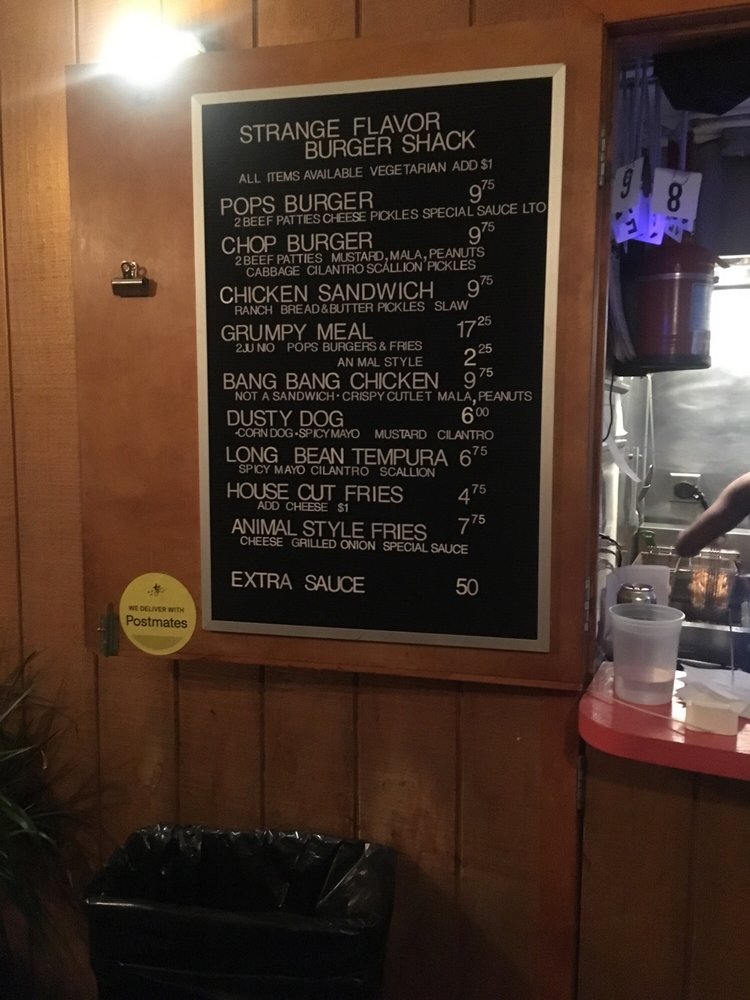 STRANGE FLAVOR
BURGER SHACK
ALL ITEMS AVAILABLE VEGETARIAN ADD $1
POPS BURGER 9 75
2 BEEF PATTIES CHEESE PICKLES SPECIAL SAUCE LTO
CHOP BURGER 9 75
2 BEEF PATTIES MUSTARD, MALA, PEANUTS
CABBAGE CILANTRO SCALLION PICKLES
CHICKEN SANDWICH 9 75
RANCH BREAD & BUTTER PICKLES SLAW
GRUMPY MEAL 17 25
2 JU NIO POPS BURGERS & FRIES
AN MAL STYLE 2 25
BANG BANG CHICKEN 9 75
NOT A SANDWICH • CRISPY CUTLET MALA, PEANUTS
DUSTY DOG 6 00
•CORN DOG • SPICY MAYO MUSTARD CILANTRO
LONG BEAN TEMPURA 6 75
SPICY MAYO CILANTRO SCALLION
HOUSE CUT FRIES 4 75
ADD CHEESE $1
ANIMAL STYLE FRIES 7 75
CHEESE GRILLED ONION SPECIAL SAUCE
EXTRA SAUCE 50
WE DELIVER WITH
Postmates
9
8